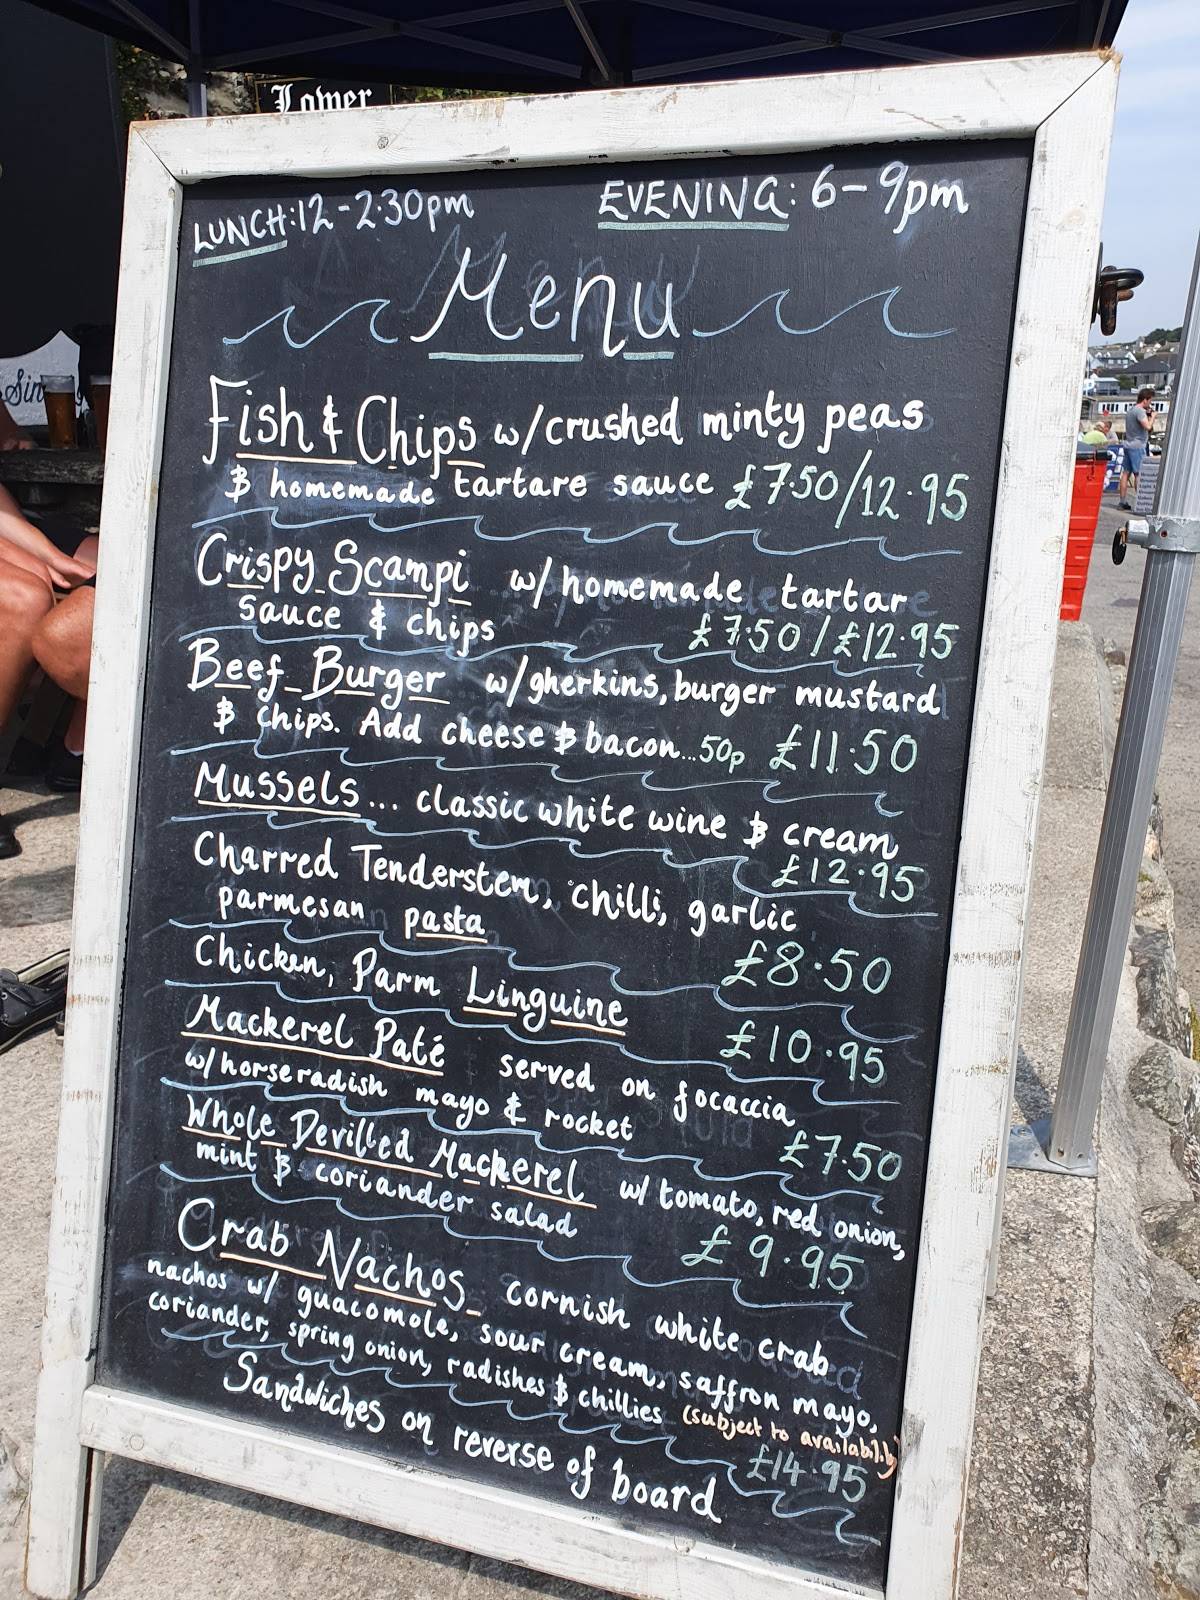 Lower
LUNCH: 12-2:30pm EVENING: 6-9pm
Menu
Fish & Chips w/crushed minty peas
& homemade tartare sauce £7.50/12.95
Crispy Scampi w/homemade tartar
sauce & chips £7.50/£12.95
Beef Burger w/gherkins, burger mustard
& chips. Add cheese & bacon...50p £11.50
Mussels... classic white wine & cream
£12.95
Charred Tenderstem, chilli, garlic
parmesan pasta £8.50
Chicken, Parm Linguine £10.95
Mackerel Paté served on focaccia
w/horseradish mayo & rocket £7.50
Whole Devilled Mackerel w/ tomato, red onion,
mint & coriander salad £9.95
Crab Nachos cornish white crab
nachos w/ guacomole, sour cream, saffron mayo,
coriander, spring onion, radishes & chillies (subject to availability)
£14.95
Sandwiches on reverse of board